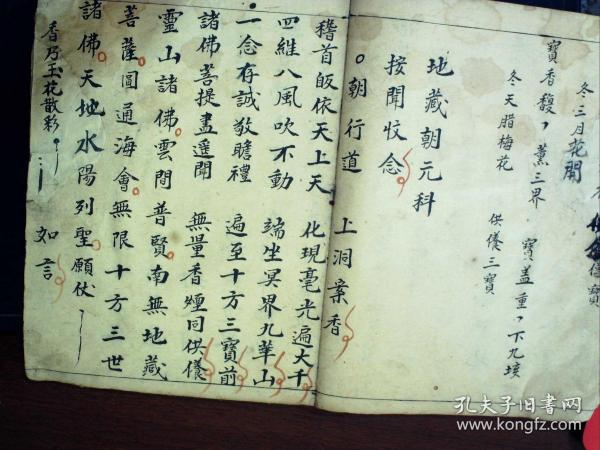 冬三月花開
寶香馥，薰三界 寶盖重，下九垓
冬天腊梅花 供儀三寶
地藏朝元科
按聞收念
朝行道 上洞案香
稽首皈依天上天 化現毫光遍大千
四維八風吹不動 端坐冥界九華山
一念存誠敬瞻禮 遍至十方三寶前
諸佛菩提盡遥聞 無量香煙同供儀
靈山諸佛。雲間普賢。南無地藏
菩薩。圓通海會。無限十方三世
諸佛。天地水陽列聖。願伏
香乃玉花散彩 如言
孔夫子旧書网
www.kongfz.com